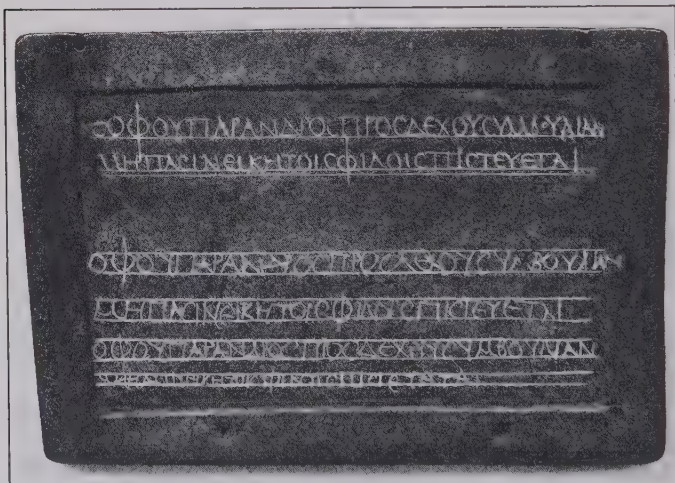 CΟΦΟΥΠΑΡΑΝΔΡΟCΠΡΟCΔΕΧΟΥCΥΜΒΟΥΛΙΑΝ
ΜΗΠΑCΙΝΕΙΚΗΤΟΙCΦΙΛΟΙCΠΙCΤΕΥΕΤΑΙ
ΟΦΟΥΠΑΡΑΝΔΡΟCΠΡΟCΔΕΧΟΥCΥΜΒΟΥΛΙΑΝ
ΜΗΠΑCΙΝΕΙΚΗΤΟΙCΦΙΛΟΙCΠΙCΤΕΥΕΤΑΙ
ΟΦΟΥΠΑΡΑΝΔΡΟCΠΡΟCΔΕΧΟΥCΥΜΒΟΥΛΙΑΝ